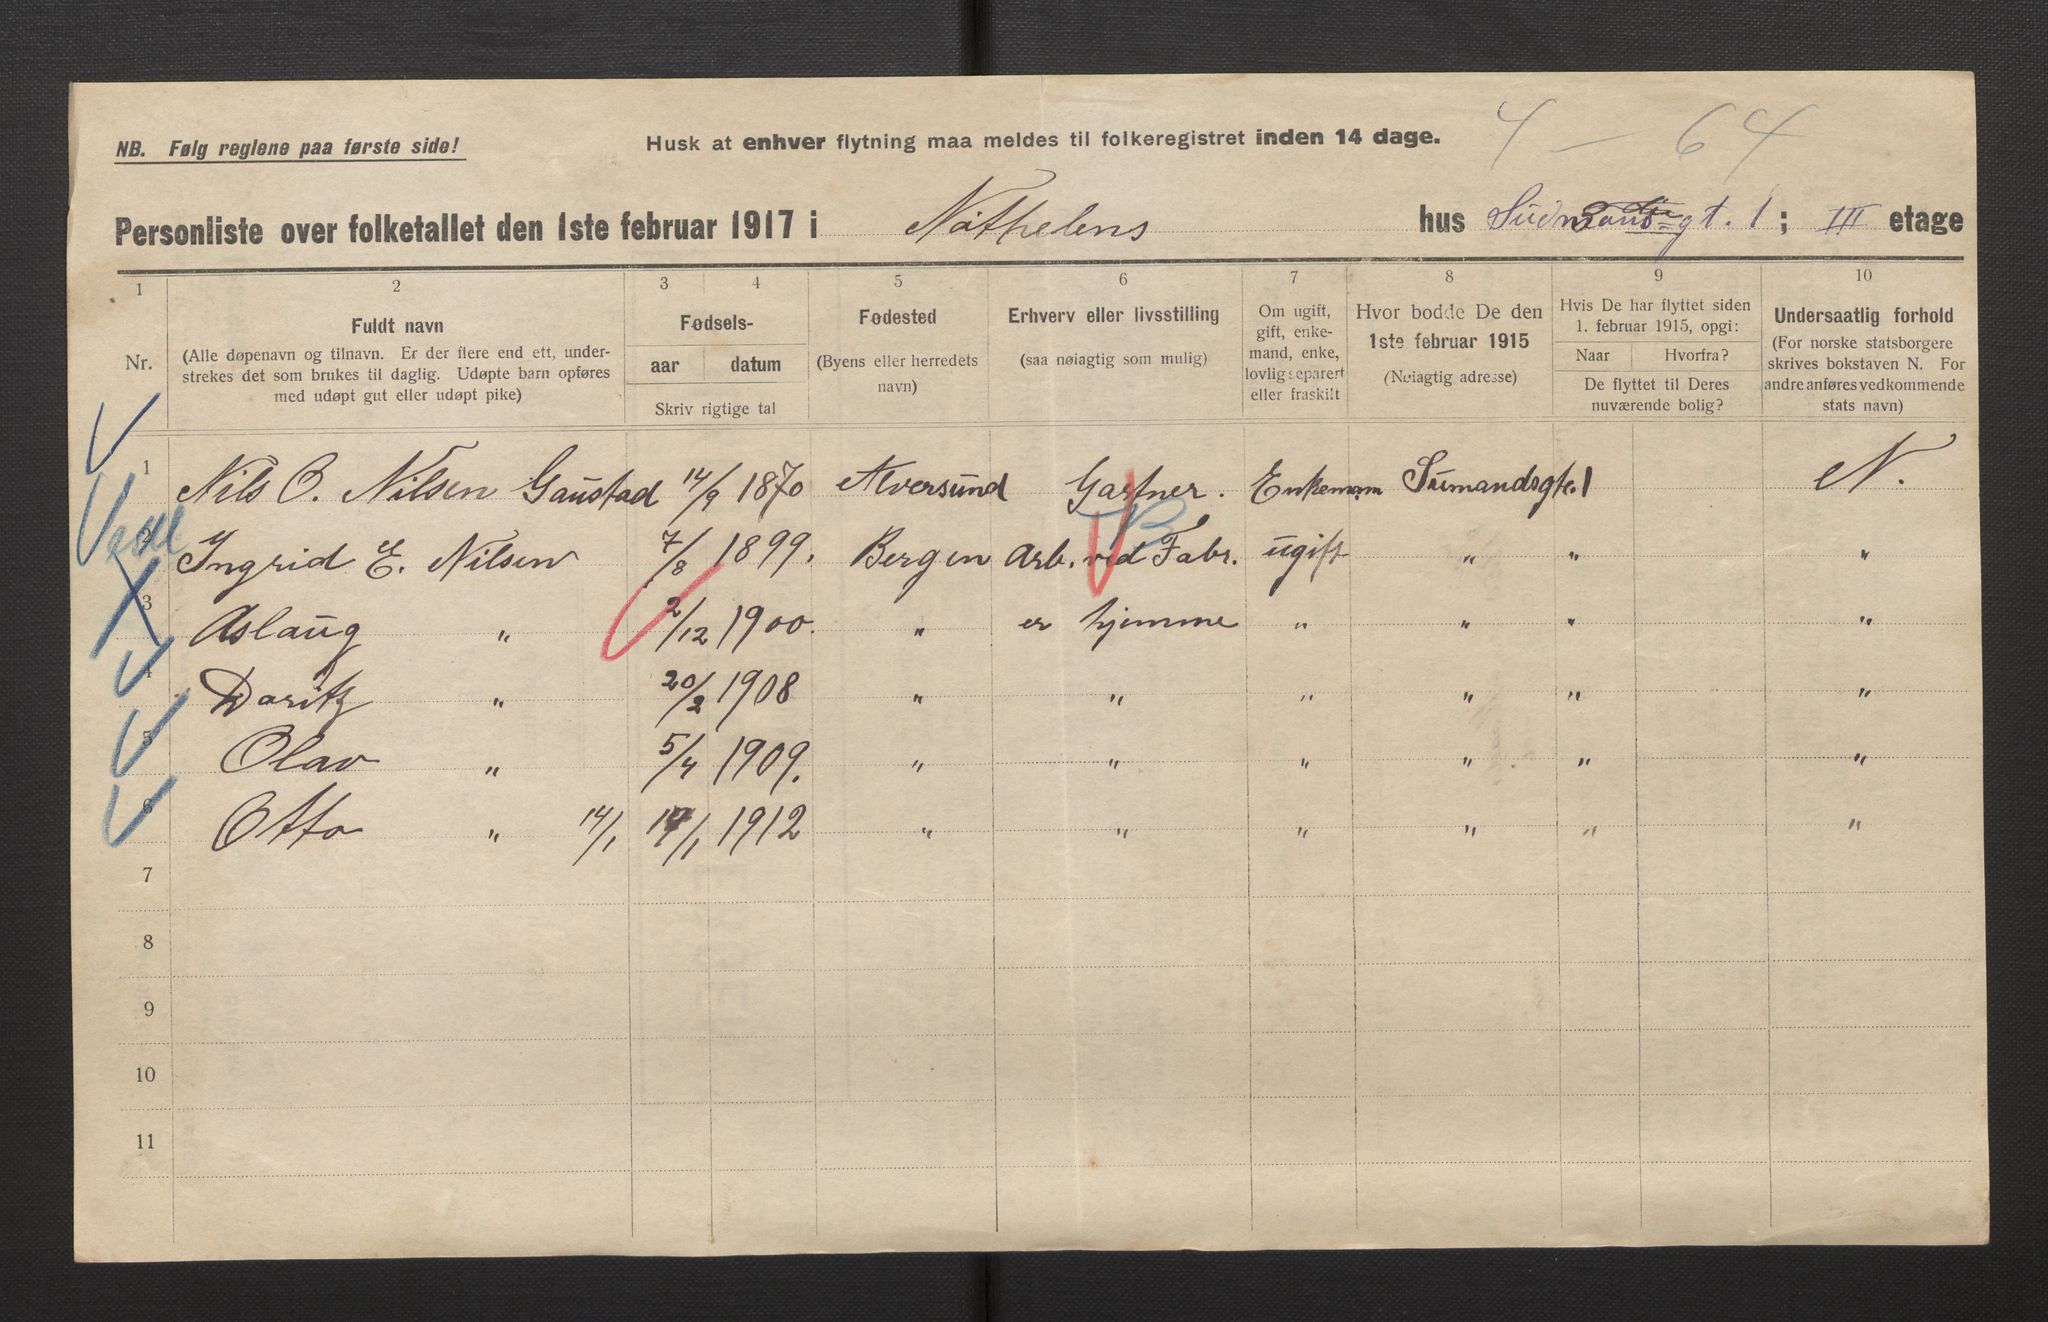 4 — 64
NB. Følg reglene paa første side!
Husk at enhver flytning maa meldes til folkeregistret inden 14 dage.
Personliste over folketallet den 1ste februar 1917 i Nathelens hus gt. 1; III etage
1 2 3 4 5 6 7 8 9 10
Nr.
Fuldt navn
(Alle døpenavn og tilnavn. Er der flere end ett, under-
strekes det som brukes til daglig. Udøpte barn opføres
med udøpt gut eller udøpt pike)
Fødsels-
aar datum
Skriv rigtige tal
Fødested
(Byens eller herredets
navn)
Erhverv eller livsstilling
(saa nøiagtig som mulig)
Om ugift,
gift, enke-
mand, enke,
lovlig separert
eller fraskilt
Hvor bodde De den
1ste februar 1915
(Nøiagtig adresse)
Hvis De har flyttet siden
1. februar 1915, opgi:
Naar Hvorfra?
De flyttet til Deres
nuværende bolig?
Undersaatlig forhold
(For norske statsborgere
skrives bokstaven N. For
andre anføres vedkommende
stats navn)
1 Nils O. Nilsen Gaustad 14/9 1870 Alversund Gartner. Enkemam Sumandsgte. 1 N.
2 Ingrid E. Nilsen 7/8 1899. Bergen Arb. ved Fabr. ugift " " "
3 Aslaug " 2/12 1900. " er hjemme " " " "
4 Doritz " 20/2 1908 " " " " " "
5 Olav " 5/4 1909. " " " " " "
6 Otto " 14/1 14/1 1912 " " " " " "
7
8
9
10
11